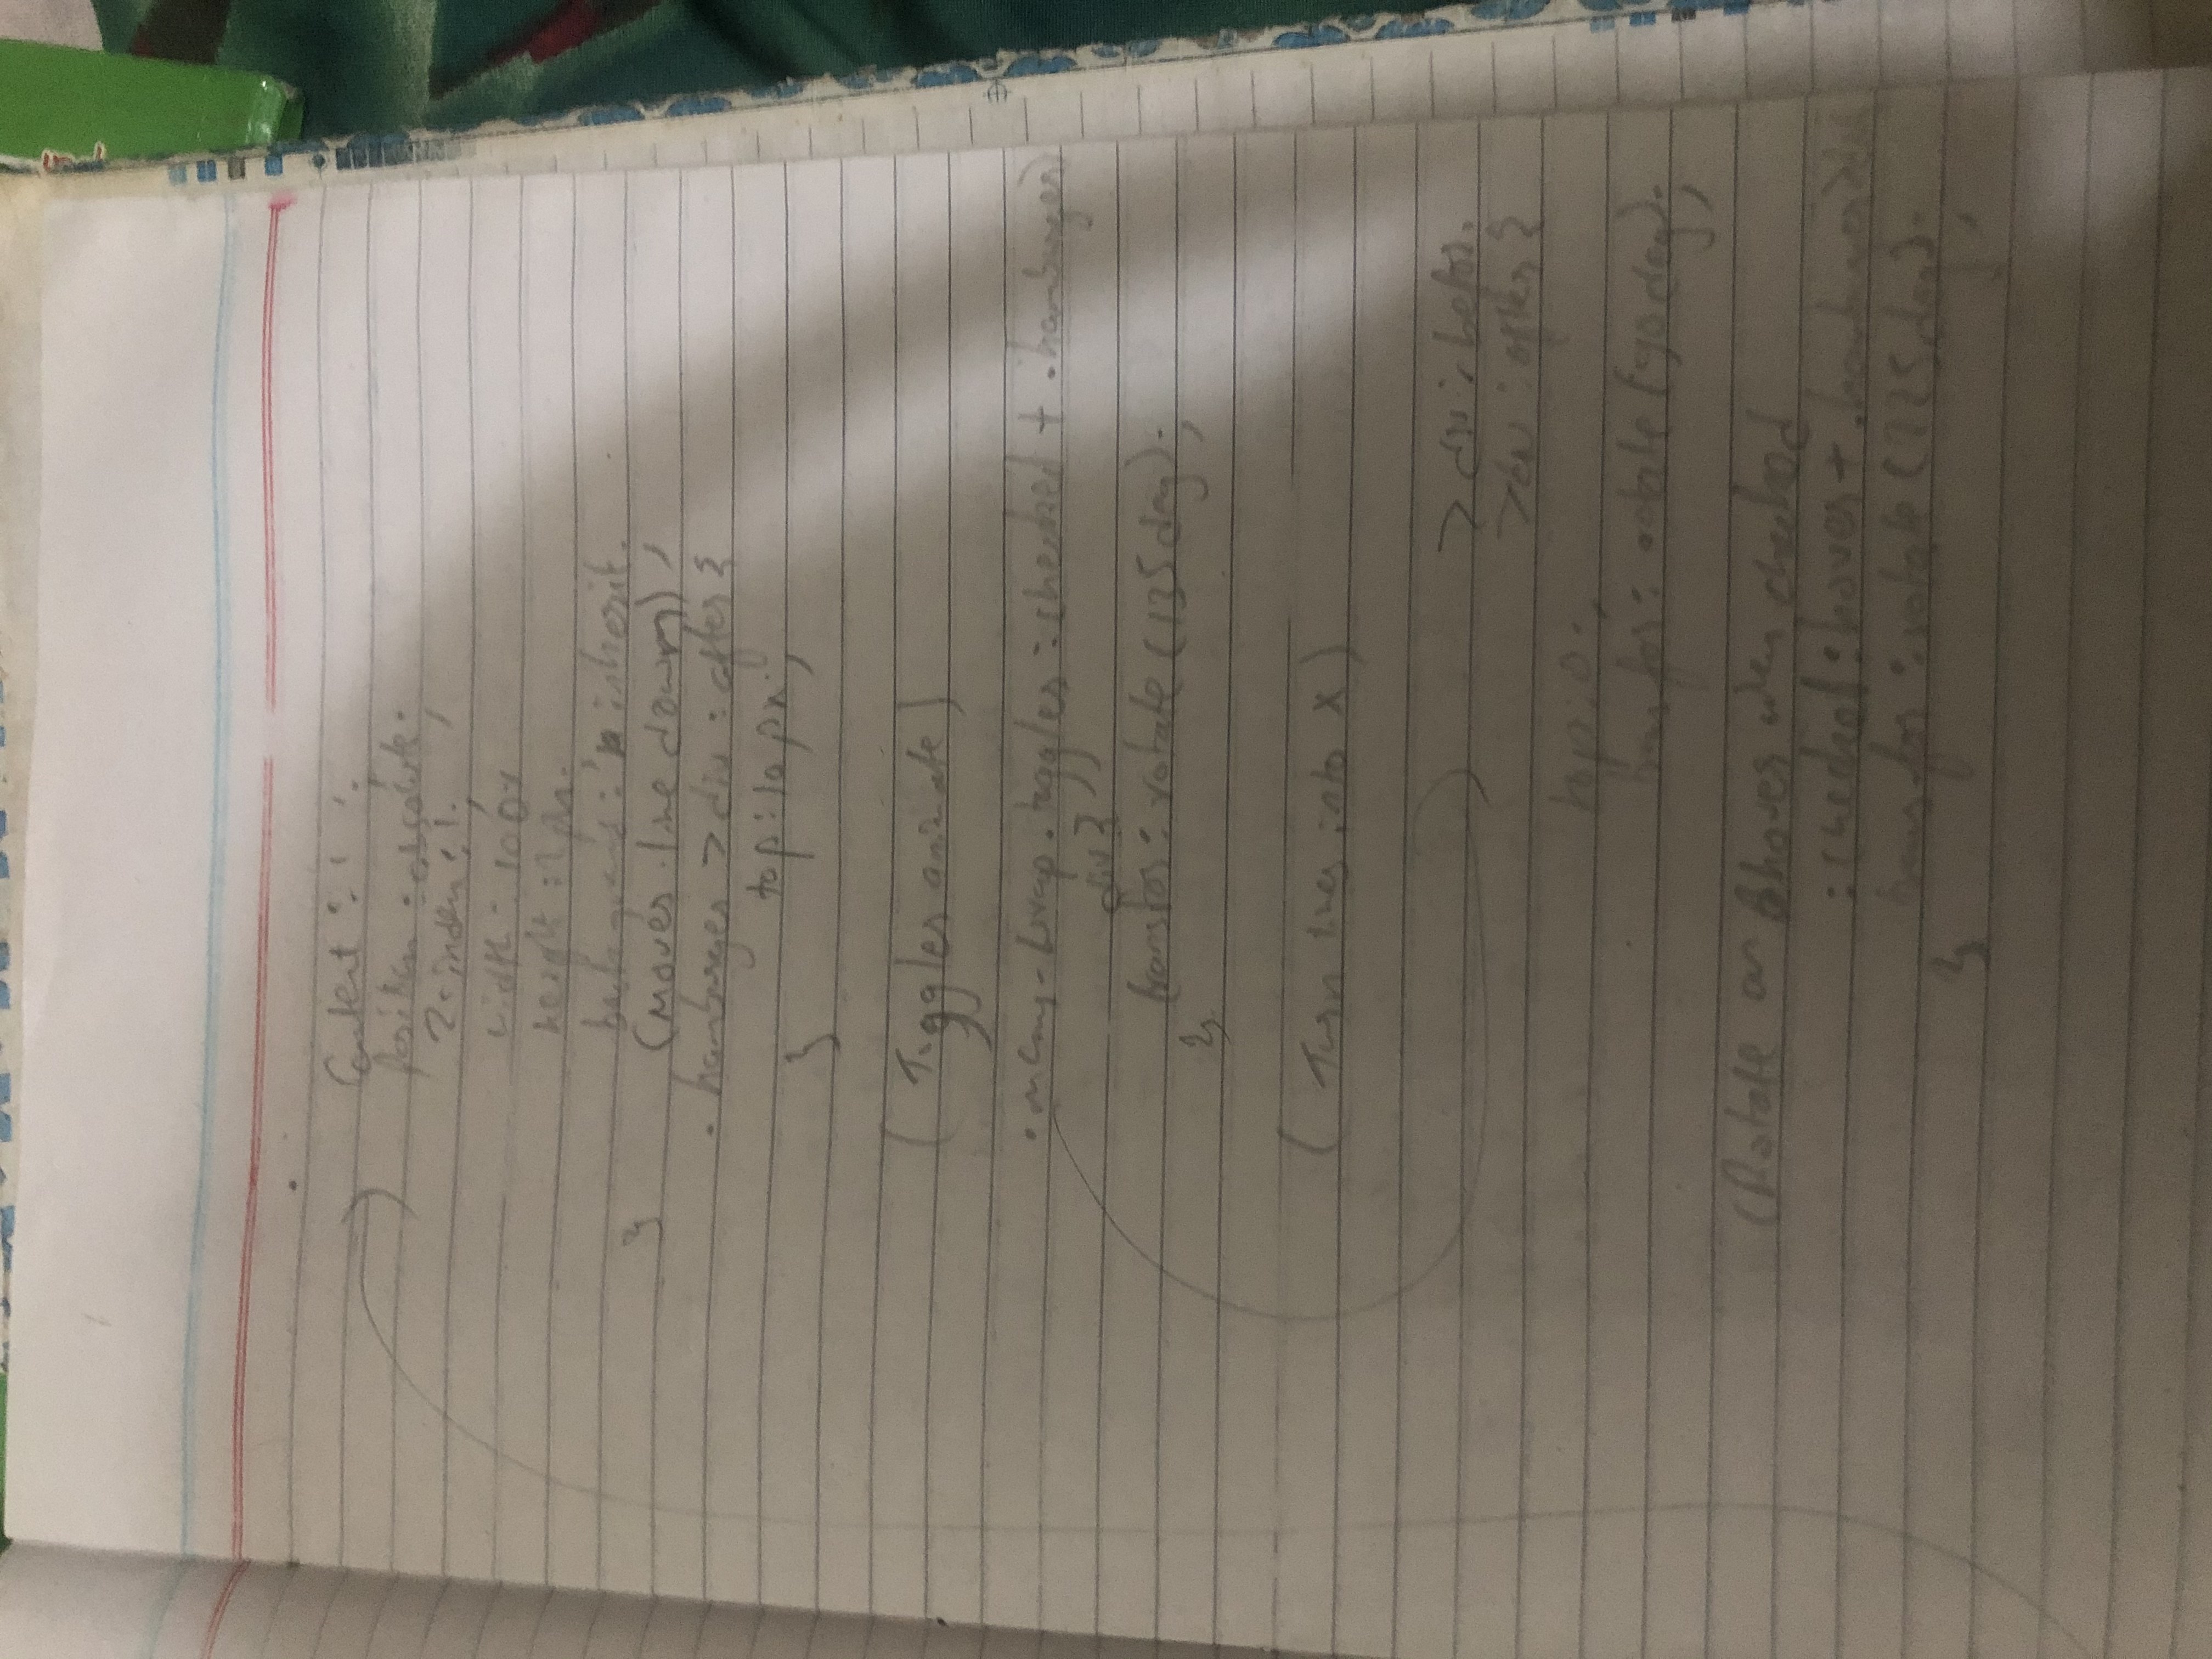 Content : ' ';
Position : absolute;
Z-index : 1;
width : 100%
height : 2px;
background : inherit.
}
(Moves line down)
. hamburger > div : after {
top : 10px;
}
( Toggler animate )
. menu-wrap . toggler : checked + . hamburger >
div {
transfor : rotate (135 deg);
}
( Turn lines into X )
> div : befor.
> div : after {
top : 0 ;
transfor : rotate (90 deg);
(Rotate on hover when checked
: checked : hover + . hamburger > div
transfor : rotate (225 deg);
}